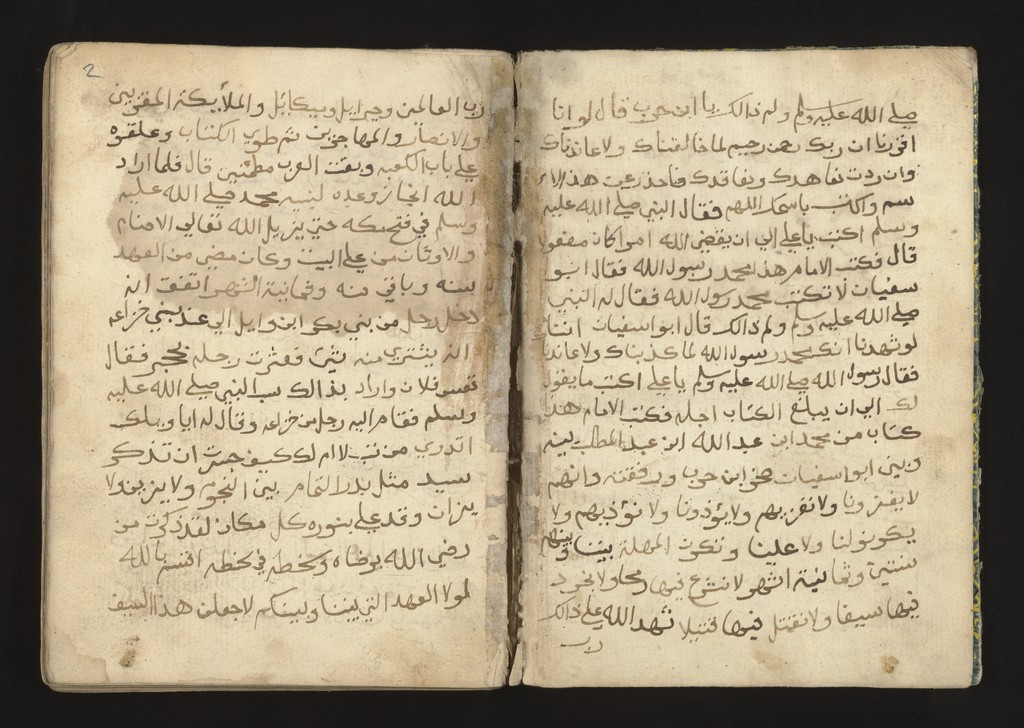 صلي الله عليه وسلم ولم ذالك يا ابن حرب قال لو اننا
اقررنا ان ربك رحمن رحيم لما خالفناك ولا عاندناك
وان ردت نعاهدك ونعاقدك فأخذ رعت هذا الا
سم واكتب باسمك اللهم فقال النبي صلي الله عليه
وسلم اكتب يا علي الي ان يقضي الله امرا كان مفعولا
قال فكتب الامام هذا محمد رسول الله فقال ابو
سفيان لا تكتب محمد رسول الله فقال له النبي
صلي الله عليه وسلم ولم ذالك قال ابو اسفيان اننا
لو شهدنا انك محمد رسول الله لما كذبناك ولا عاندنا
فقال رسول الله صلي الله عليه وسلم يا علي اكتب ما يقول
لك الي ان يبلغ الكتاب اجله فكتب الامام هذا
كتاب من محمد ابن عبد الله ابن عبد المطلب بينه
وبين ابو اسفيان صخر ابن حرب ورفقته وانهم
لا يغزونا ولا نغزيهم ولا يؤذونا ولا نؤذيهم ولا
يكونو لنا ولا علينا وتكون المهلة بيننا وبينهم
سنتين وثمانية اشهر لا نشرع فيها رمحا ولا نجرد
فيها سيفا ولا نقتل فيها قتيلا شهد الله علي ذالك
رب
2
رب العالمين وجبرايل وميكايل والملأيكة المقربين
والانصار والمهاجرين ثم طوي الكتاب وعلقوه
علي باب الكعبه وبقت العرب مطمنين قال فلما اراد
الله انجاز وعده لنبيه محمد صلي الله عليه
وسلم في فتح مكه حتي يزيل الله تعالي الاصنام
والاوثان من علي البيت وكان مضي من العهد
سنه وباقي سنه وثمانية اشهر اتفق انه
دخل رجل من بني بكر ابن وايل الي عند بني خزاعه
انه يشتري منه شيئ فعثرت رجله بحجر فقال
تعس فلان واراد بذالك سب النبي صلي الله عليه
وسلم فقام اليه رجل من خزاعه وقال له ايا ويلك
اتدري من تسب لا ام لك كيف جسرت ان تذكر
سيد مثل بدر التمام بين النجوم ولا يزيزولا
يزان وقد علي بنوره كل مكان لقد ذكرت من
رضي الله برضاه وسخطه في سخطه اقسم بالله
لولا العهد التي بيننا وبينكم لاجعلن هذا السيف